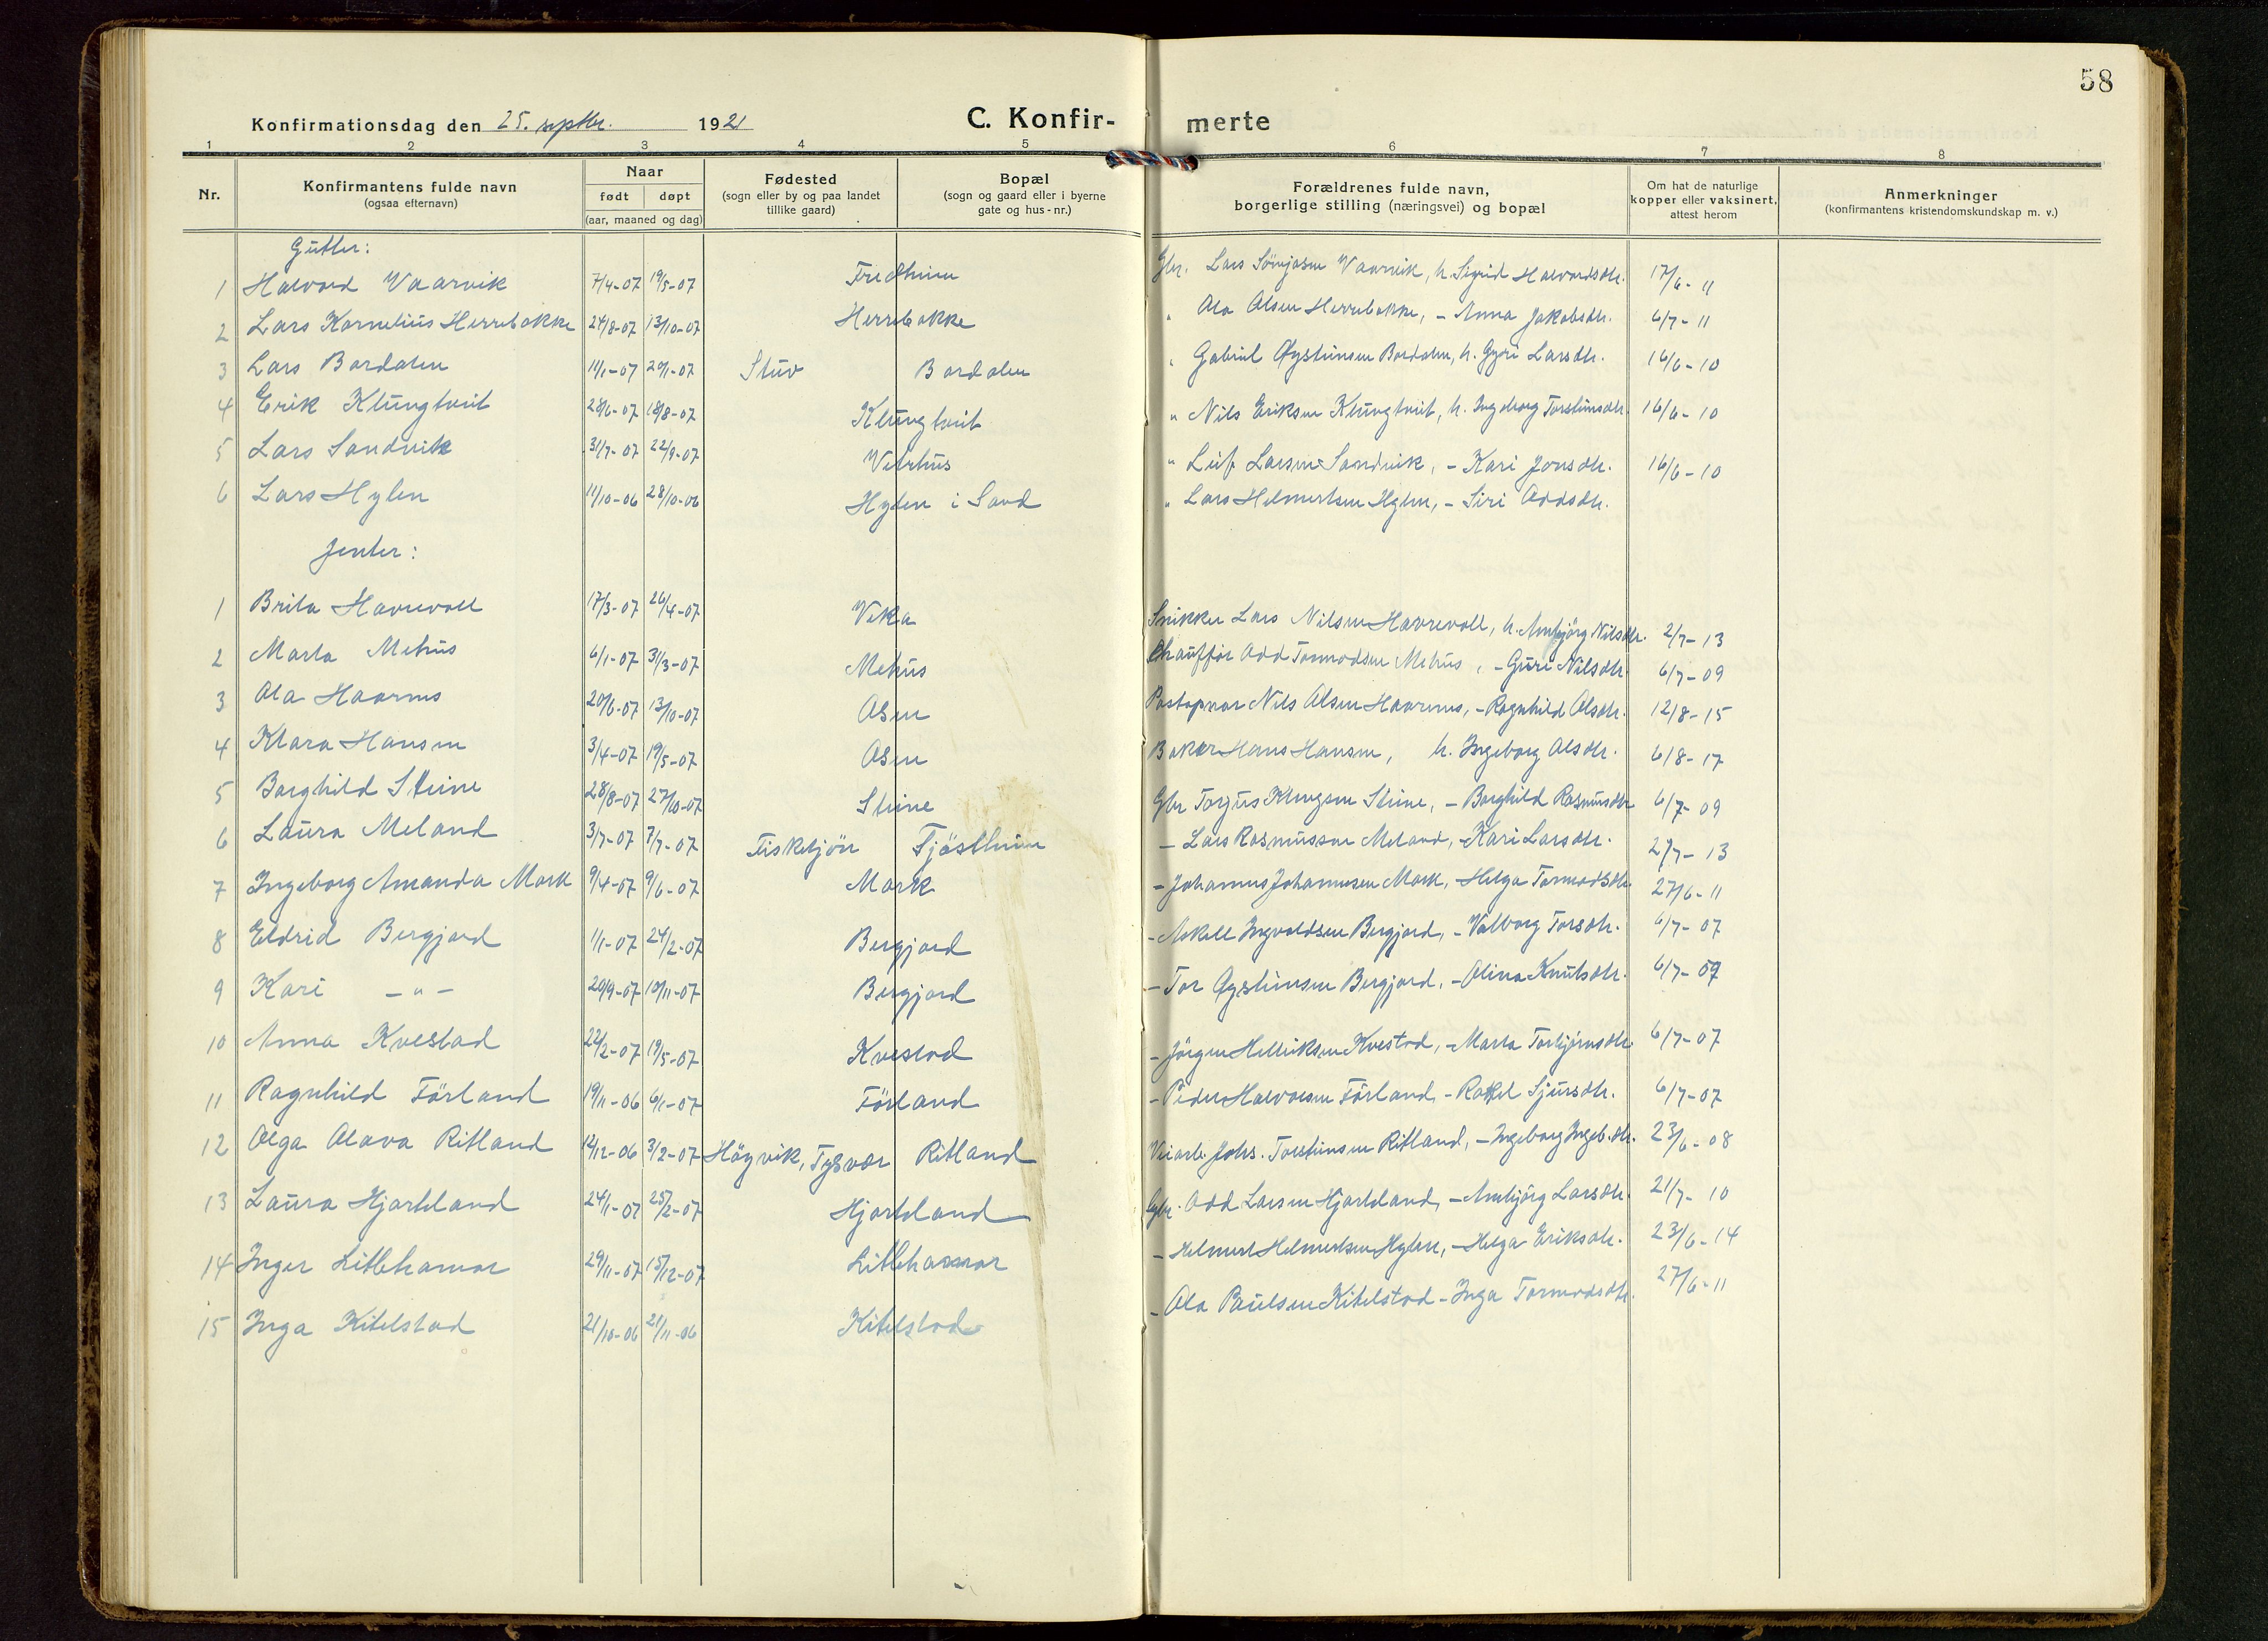 58
Konfirmationsdag den 25. septbr. 1921
C. Konfir- merte
1 2 3 4 5 6 7 8
Nr.
Konfirmantens fulde navn
(ogsaa efternavn)
Naar
født døpt
(aar, maaned og dag)
Fødested
(sogn eller by og paa landet
tillike gaard)
Bopæl
(sogn og gaard eller i byerne
gate og hus-nr.)
Forældrenes fulde navn,
borgerlige stilling (næringsvei) og bopæl
Om hat de naturlige
kopper eller vaksinert,
attest herom
Anmerkninger
(konfirmantens kristendomskundskap m. v.)
Gutter:
1 Halvard Vaarvik 7/4-07 19/5-07 Fredheim Gbr. Lars Vaarvik, h. Sigrid Halvardsdtr. 17/6-11
2 Lars Kornelius Herrebakke 24/8-07 13/10-07 Herrebakke " Ola Olsen Herrebakke, - Anna Jakobsdtr. 6/7-11
3 Lars Bordalen 11/1-07 20/1-07 Stuv Bordalen " Gabriel Øysteinsen Bordalen, h. Gyri Larsdtr. 16/6-10
4 Erik Klungtveit 28/6-07 18/8-07 Klungtveit " Nils Eriksen Klungtveit, h. Ingeborg Torsteinsdtr. 16/6-10
5 Lars Sandvik 31/7-07 22/9-07 Vetrhus " Leif Larsen Sandvik, - Kari Jonsdtr. 16/6-10
6 Lars Hylen 11/10-06 28/10-06 Hylen i Sand " Lars Helmertsen Hylen, - Siri Oddsdtr.
Jenter:
1 Brita Havrevoll 17/3-07 26/4-07 Veka Snikker Lars Nilsen Havrevoll, h. Anbjörg Nilsdtr. 2/7-13
2 Marta Mehus 6/1-07 31/3-07 Mehus Chaufför Odd Tormodsen Mehus, - Guri Nilsdtr. 6/7-09
3 Ola Haarnes 20/6-07 13/10-07 Osen Postopnar Nils Olsen Haarenes, - Ragnhild Olsdtr. 12/8-15
4 Klara Hansen 3/4-07 19/5-07 Osen Baker Hans Hansen, h. Ingeborg Olsdtr. 6/8-17
5 Borghild Steine 28/8-07 27/10-07 Steine Gbr Torjus Steine, - Borghild Rasmusdtr 6/7-09
6 Laura Meland 3/7-07 7/7-07 Fisketjön Tjöstheim - Lars Rasmussen Meland, - Kari Larsdtr. 2/7-13
7 Ingeborg Amanda Mork 9/4-07 9/6-07 Mork - Johannes Johannesen Mork, - Helga Tormodsdtr 27/6-11
8 Eldrid Bergjord 1/1-07 24/2-07 Bergjord - Askell Ingvaldsen Bergjord, - Valborg Torsdtr. 6/7-07
9 Kari - " - 20/9-07 10/11-07 Bergjord - Tor Øysteinsen Bergjord, - Olina Knutsdtr. 6/7-09
10 Anna Kvestad 22/2-07 19/5-07 Kvestad - Jörgen Kvestad, - Marta Torbjörnsdtr. 6/7-07
11 Ragnhild Förland 19/11-06 6/1-07 Förland - Peder Halvorsen Förland, - Rakel Sjursdtr. 6/7-07
12 Olga Olava Ritland 14/12-06 3/2-07 Högvik, Tysvær Ritland Veiarb. Johs. Torsteinsen Ritland, - Ingeborg Ingeb.dtr. 23/6-08
13 Laura Hjorteland 24/1-07 25/2-07 Hjorteland Gbr. Odd Larsen Hjorteland, - Anbjörg Larsdtr. 21/7-10
14 Inger Litlehamar 29/11-07 15/12-07 Litlehamar - Helmert Helmertsen Hylen, - Helga Eriksdtr. 23/6-14
15 Inga Kitelstad 21/10-06 21/11-06 Kitelstad - Ola Paulsen Kitelstad - Inga Tormodsdtr. 27/6-11